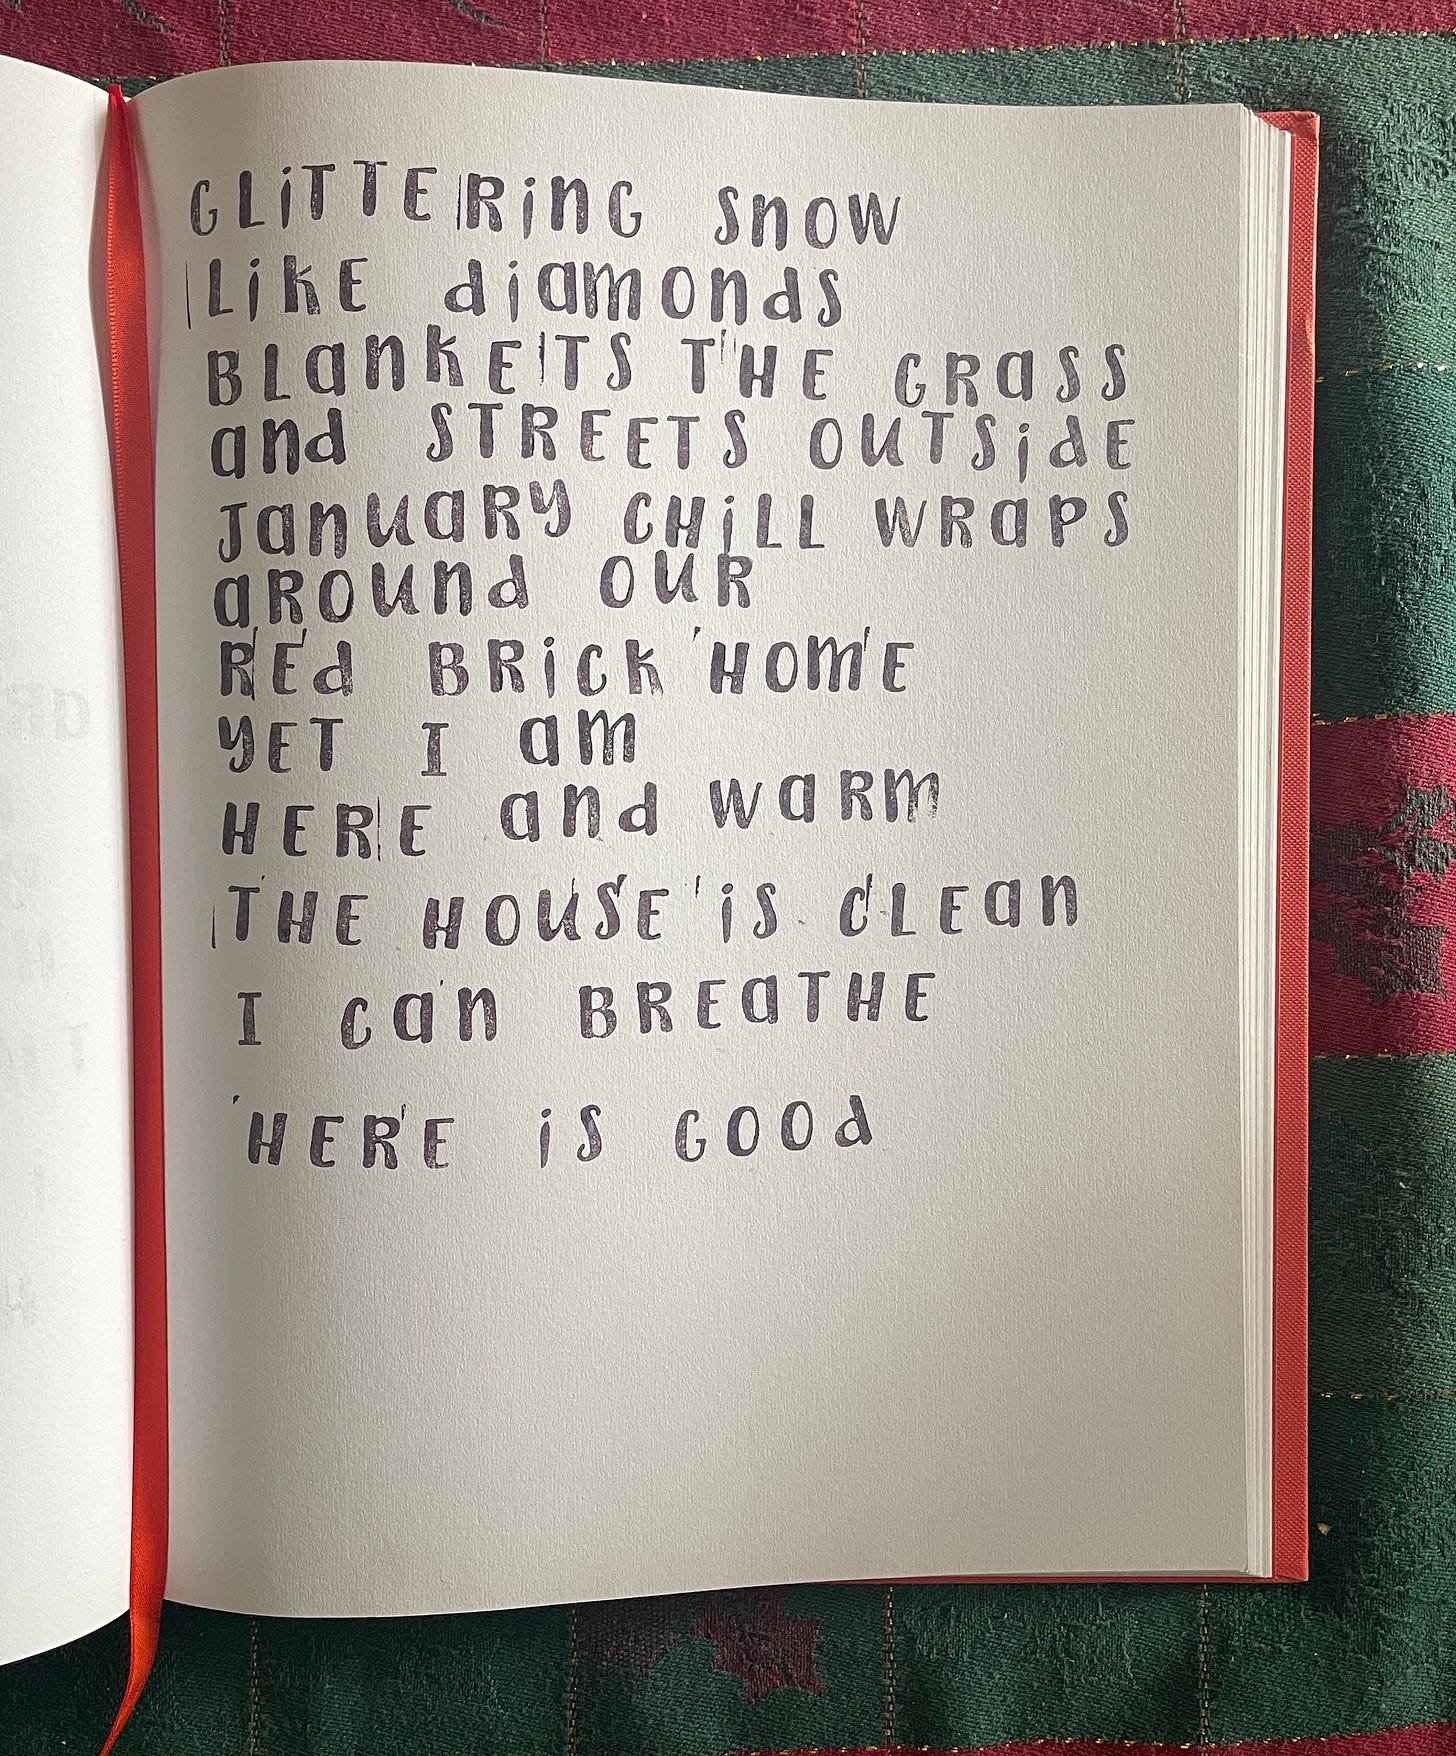 GLiTTERinG SnOW
LiKE diamonds
BLankETS THE GRaSS
and STREETS OUTSidE
JanuaRY CHiLL WRaPS
aROund OUR
REd BRiCK HOmE
YET I am
HERE and WaRm
THE HOUSE iS CLEan
I Can BREaTHE
HERE iS GOOd